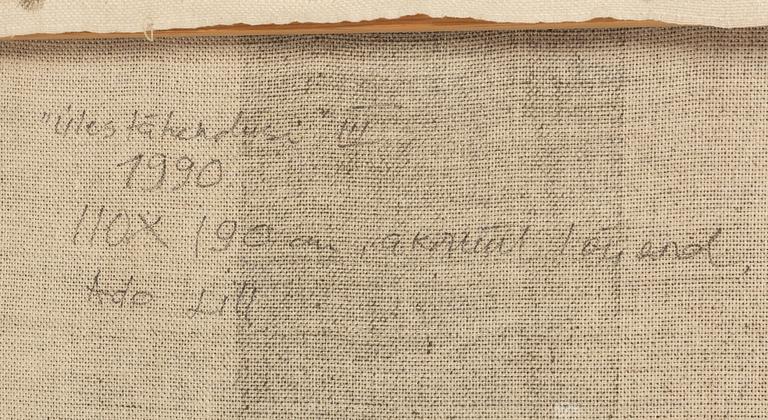 "Ülestähendusi" III
1990
110X 190 cm, akrüül lõuend
Ado Lill